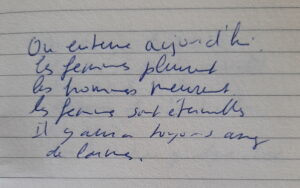 On enterre aujourd'hui.
les femmes pleurent
les hommes meurent
les femmes sont éternelles
il y aura toujours assez
de larmes.